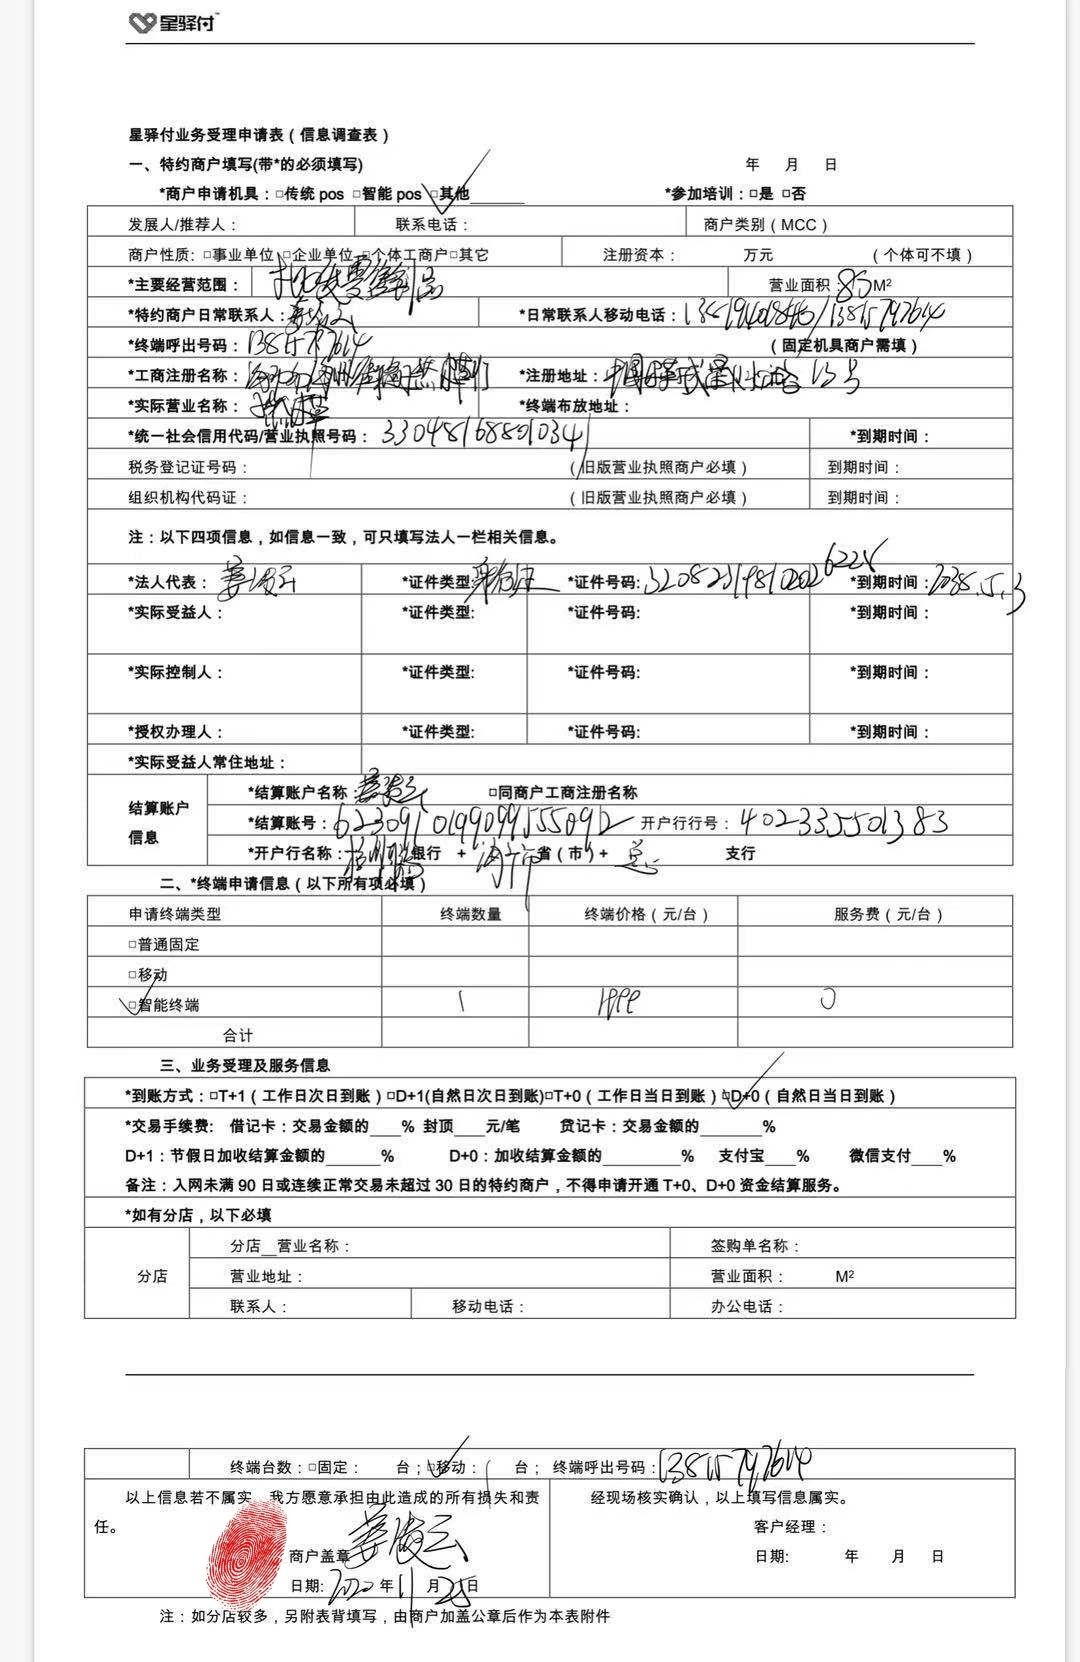 星驿付™
星驿付业务受理申请表(信息调查表)
一、特约商户填写(带*的必须填写) 年 月 日
*商户申请机具:□传统 pos □智能 pos □其他______ *参加培训:□是 □否
发展人/推荐人: 联系电话: 商户类别(MCC)
商户性质: □事业单位 □企业单位 □个体工商户□其它 注册资本: 万元 (个体可不填)
*主要经营范围: 营业面积:85 M²
*特约商户日常联系人: *日常联系人移动电话: /13815797614
*终端呼出号码: 13815797614 (固定机具商户需填)
*工商注册名称: *注册地址:
*实际营业名称: *终端布放地址:
*统一社会信用代码/营业执照号码: *到期时间:
税务登记证号码: (旧版营业执照商户必填) 到期时间:
组织机构代码证: (旧版营业执照商户必填) 到期时间:
注:以下四项信息,如信息一致,可只填写法人一栏相关信息。
*法人代表:姜凌云 *证件类型:身份证 *证件号码: *到期时间:2038.5.3
*实际受益人: *证件类型: *证件号码: *到期时间:
*实际控制人: *证件类型: *证件号码: *到期时间:
*授权办理人: *证件类型: *证件号码: *到期时间:
*实际受益人常住地址:
结算账户信息
*结算账户名称:姜凌云 □同商户工商注册名称
*结算账号: 开户行行号:402335501383
*开户行名称: 银行 + 海宁市 省(市)+ 总 支行
二、*终端申请信息(以下所有项必填)
申请终端类型 终端数量 终端价格(元/台) 服务费(元/台)
□普通固定
□移动
□智能终端 1 1999 0
合计
三、业务受理及服务信息
*到账方式:□T+1(工作日次日到账)□D+1(自然日次日到账)□T+0(工作日当日到账)□D+0(自然日当日到账)
*交易手续费: 借记卡:交易金额的____% 封顶____元/笔 贷记卡:交易金额的________%
D+1:节假日加收结算金额的_______% D+0:加收结算金额的__________% 支付宝____% 微信支付____%
备注:入网未满 90 日或连续正常交易未超过 30 日的特约商户,不得申请开通 T+0、D+0 资金结算服务。
*如有分店,以下必填
分店
分店__营业名称: 签购单名称:
营业地址: 营业面积: M²
联系人: 移动电话: 办公电话:
终端台数:□固定: 台;□移动:1 台; 终端呼出号码:13815797614
以上信息若不属实,我方愿意承担由此造成的所有损失和责
任。
商户盖章 姜凌云
日期: 2020 年 11 月 25 日
经现场核实确认,以上填写信息属实。
客户经理:
日期: 年 月 日
注:如分店较多,另附表背填写,由商户加盖公章后作为本表附件